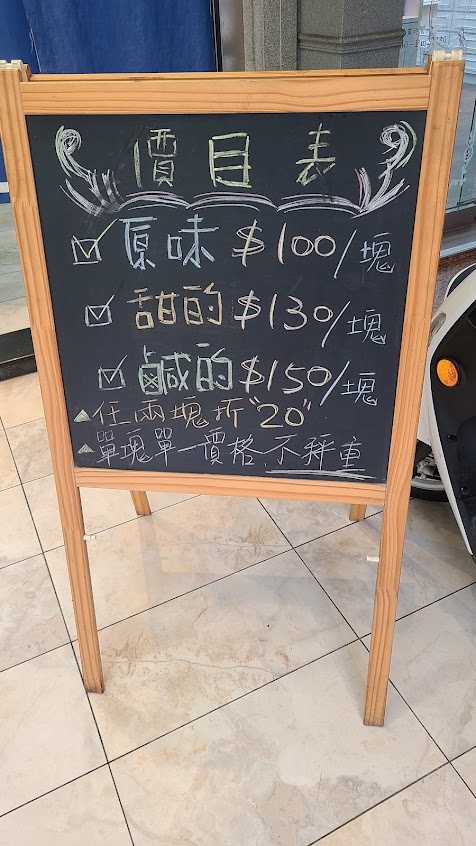 價目表
原味 $100/塊
甜的 $130/塊
鹹的 $150/塊
任兩塊折"20"
單塊單一價格,不秤重